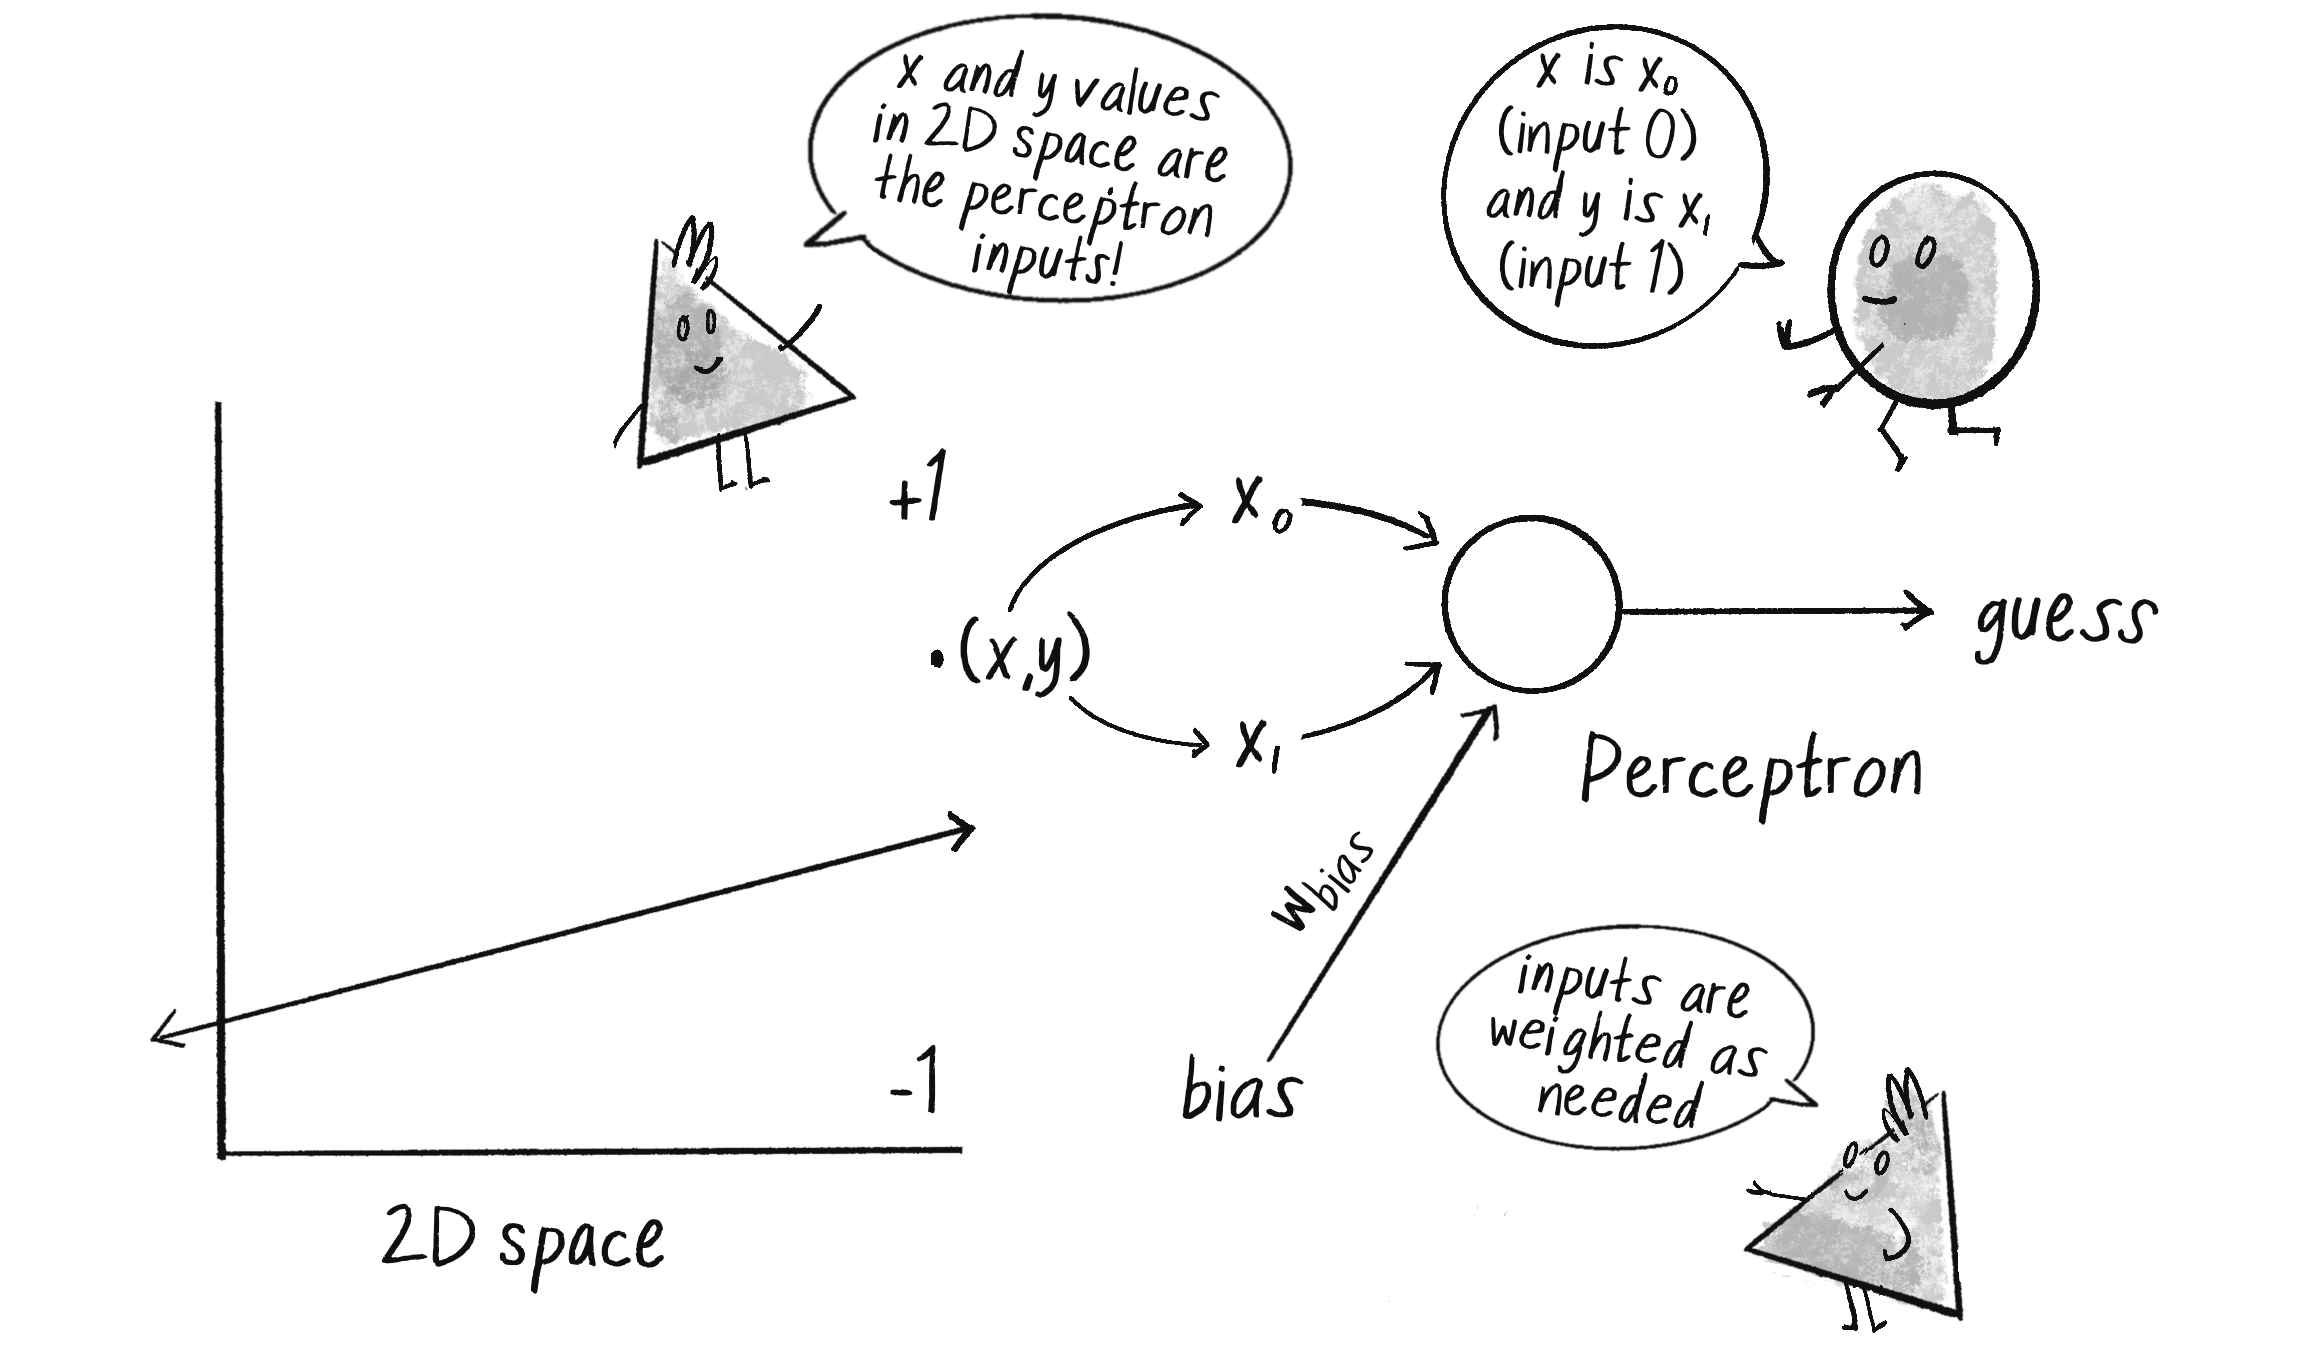 x and y values
in 2D space are
the perceptron
inputs!
x is x₀
(input 0)
and y is x₁
(input 1)
+1
x₀
(x,y)
guess
x₁
Perceptron
wbias
bias
-1
inputs are
weighted as
needed
2D space